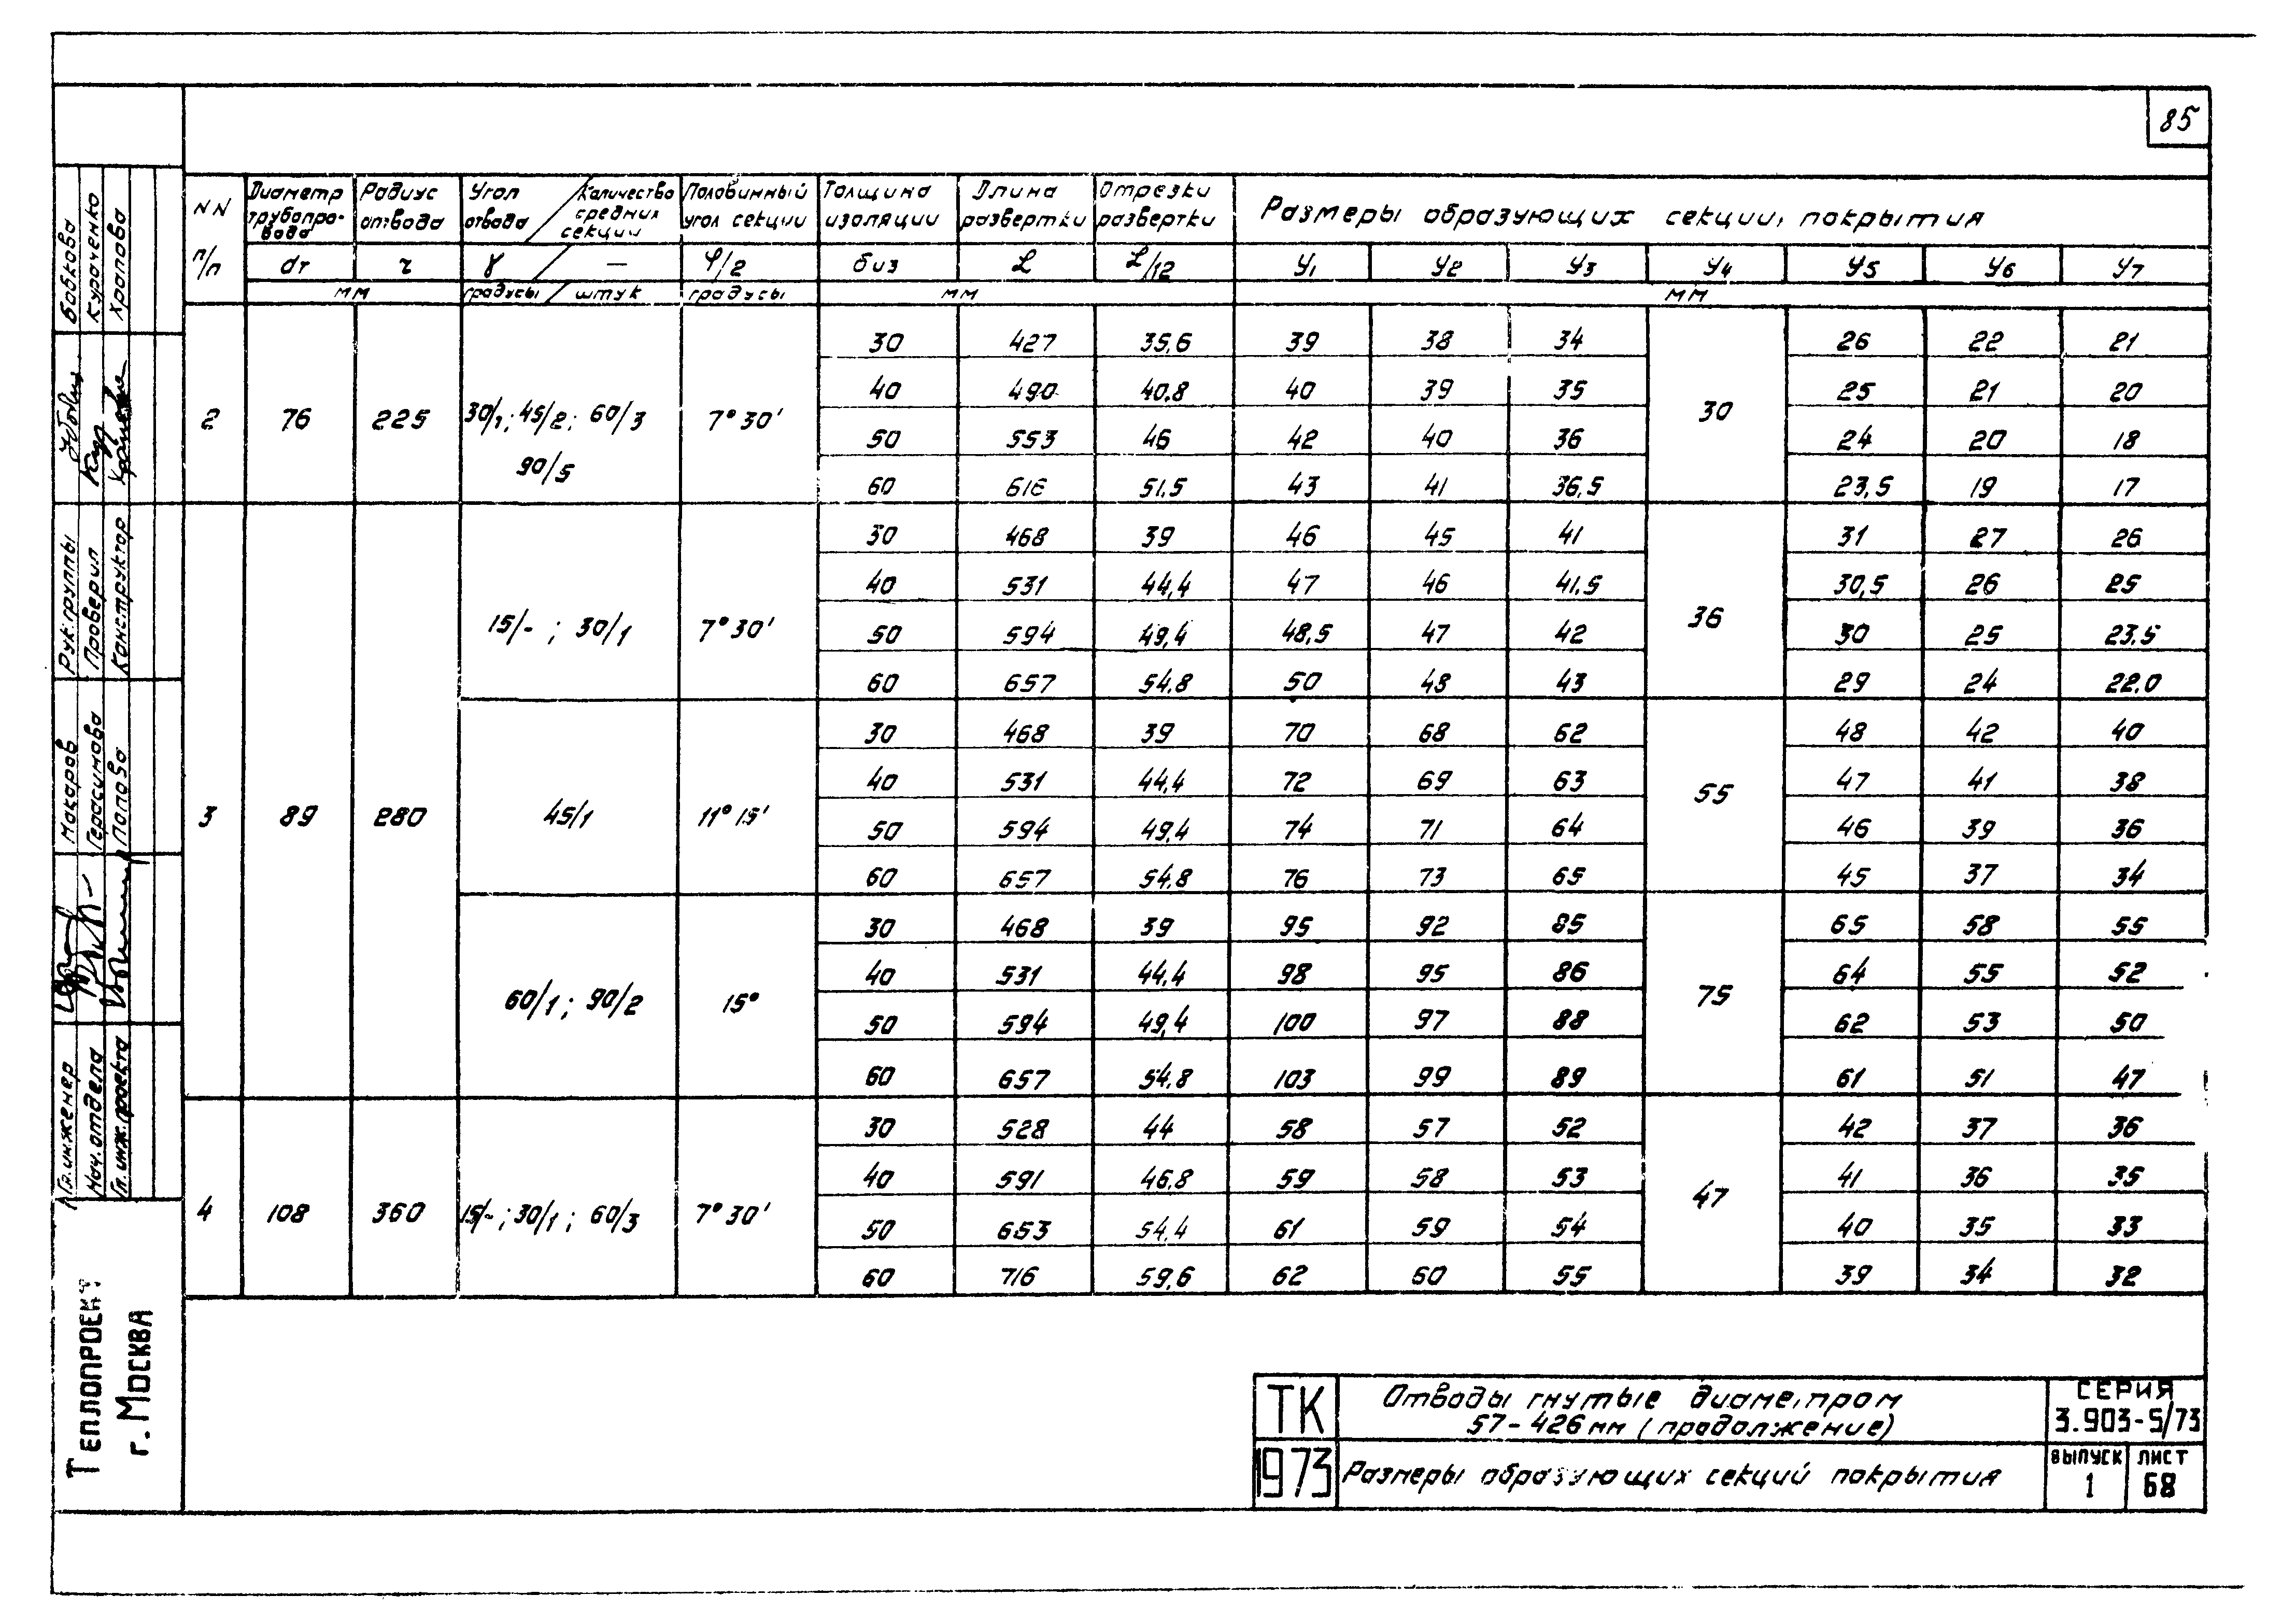 85
NN п/п
Диаметр трубопровода
Радиус отвода
Угол отвода / Количество средних секции
Половинный угол секции
Толщина изоляции
Длина развертки
Отрезки развертки
Размеры образующих секции, покрытия
dт r γ / — φ/2 δиз L L/12 У1 У2 У3 У4 У5 У6 У7
мм градусы / штук градусы мм мм
2 76 225 30/1; 45/2; 60/3 90/5 7°30' 30
30 427 35,6 39 38 34 26 22 21
40 490 40,8 40 39 35 25 21 20
50 553 46 42 40 36 24 20 18
60 616 51,5 43 41 36,5 23,5 19 17
3 89 280
15/- ; 30/1 7°30' 36
30 468 39 46 45 41 31 27 26
40 531 44,4 47 46 41,5 30,5 26 25
50 594 49,4 48,5 47 42 30 25 23,5
60 657 54,8 50 48 43 29 24 22,0
45/1 11°15' 55
30 468 39 70 68 62 48 42 40
40 531 44,4 72 69 63 47 41 38
50 594 49,4 74 71 64 46 39 36
60 657 54,8 76 73 65 45 37 34
60/1; 90/2 15° 75
30 468 39 95 92 85 65 58 55
40 531 44,4 98 95 86 64 55 52
50 594 49,4 100 97 88 62 53 50
60 657 54,8 103 99 89 61 51 47
4 108 360 15/-; 30/1; 60/3 7°30' 47
30 528 44 58 57 52 42 37 36
40 591 46,8 59 58 53 41 36 35
50 653 54,4 61 59 54 40 35 33
60 716 59,6 62 60 55 39 34 32
ТК
1973
Отводы гнутые диаметром
57-426мм (продолжение)
Размеры образующих секций покрытия
СЕРИЯ
3.903-5/73
ВЫПУСК ЛИСТ
1 68
Бобкова
Кураченко
Храпова
Рук.группы
Проверил
Конструктор
Макаров
Герасимова
Попова
Гл.инженер
Нач.отдела
Гл.инж.проекта
ТЕПЛОПРОЕКТ
г. МОСКВА